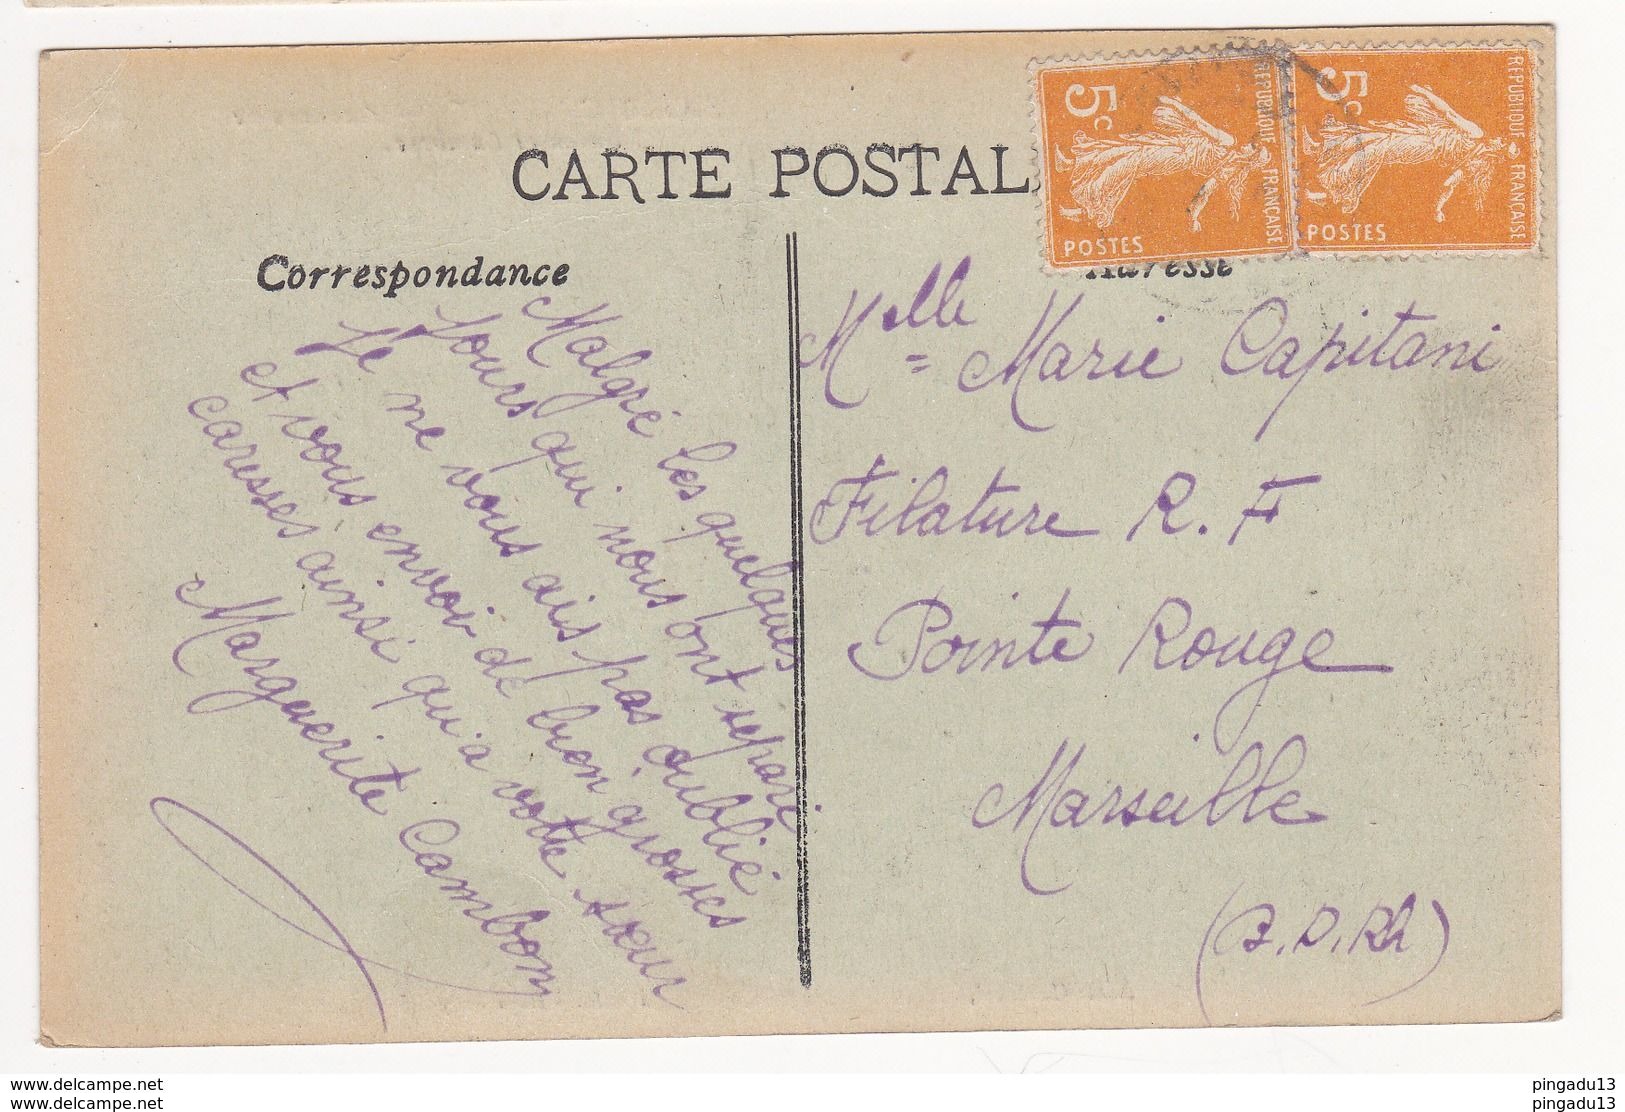 CARTE POSTAL
5c
REPUBLIQUE FRANÇAISE
POSTES
5c
REPUBLIQUE FRANÇAISE
POSTES
Correspondance
Adresse
Malgré les quelques
Jours qui nous ont separé
Je ne vous ais pas oublié
et vous envoir de bien grosses
caresses ainsi qu'a votre sœur
Marguerite Cambon
Melle Marie Capitani
Filature R. F
Pointe Rouge
Marseille
(B. D. Rh)
www.delcampe.net
www.delcampe.net
pingadu13
pingadu13